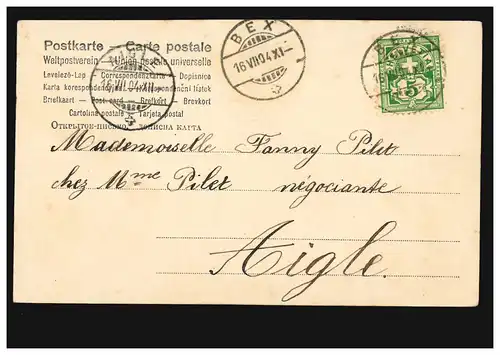 Postkarte – Carte postale
Weltpostverein – Union postale universelle
Levelező-Lap – Correspondenzkarte – Dopisnice
Karta korespondencyjna – Korespondenční lístek
Briefkaart – Post card – Brefkort – Brevkort
Cartolina postale – Tarjeta postal
BEX
16.VII.04.XI–
BEX
16.VII.04.XII
5
Mademoiselle Fanny Pilet
chez Mme Pilet négociante
Aigle.